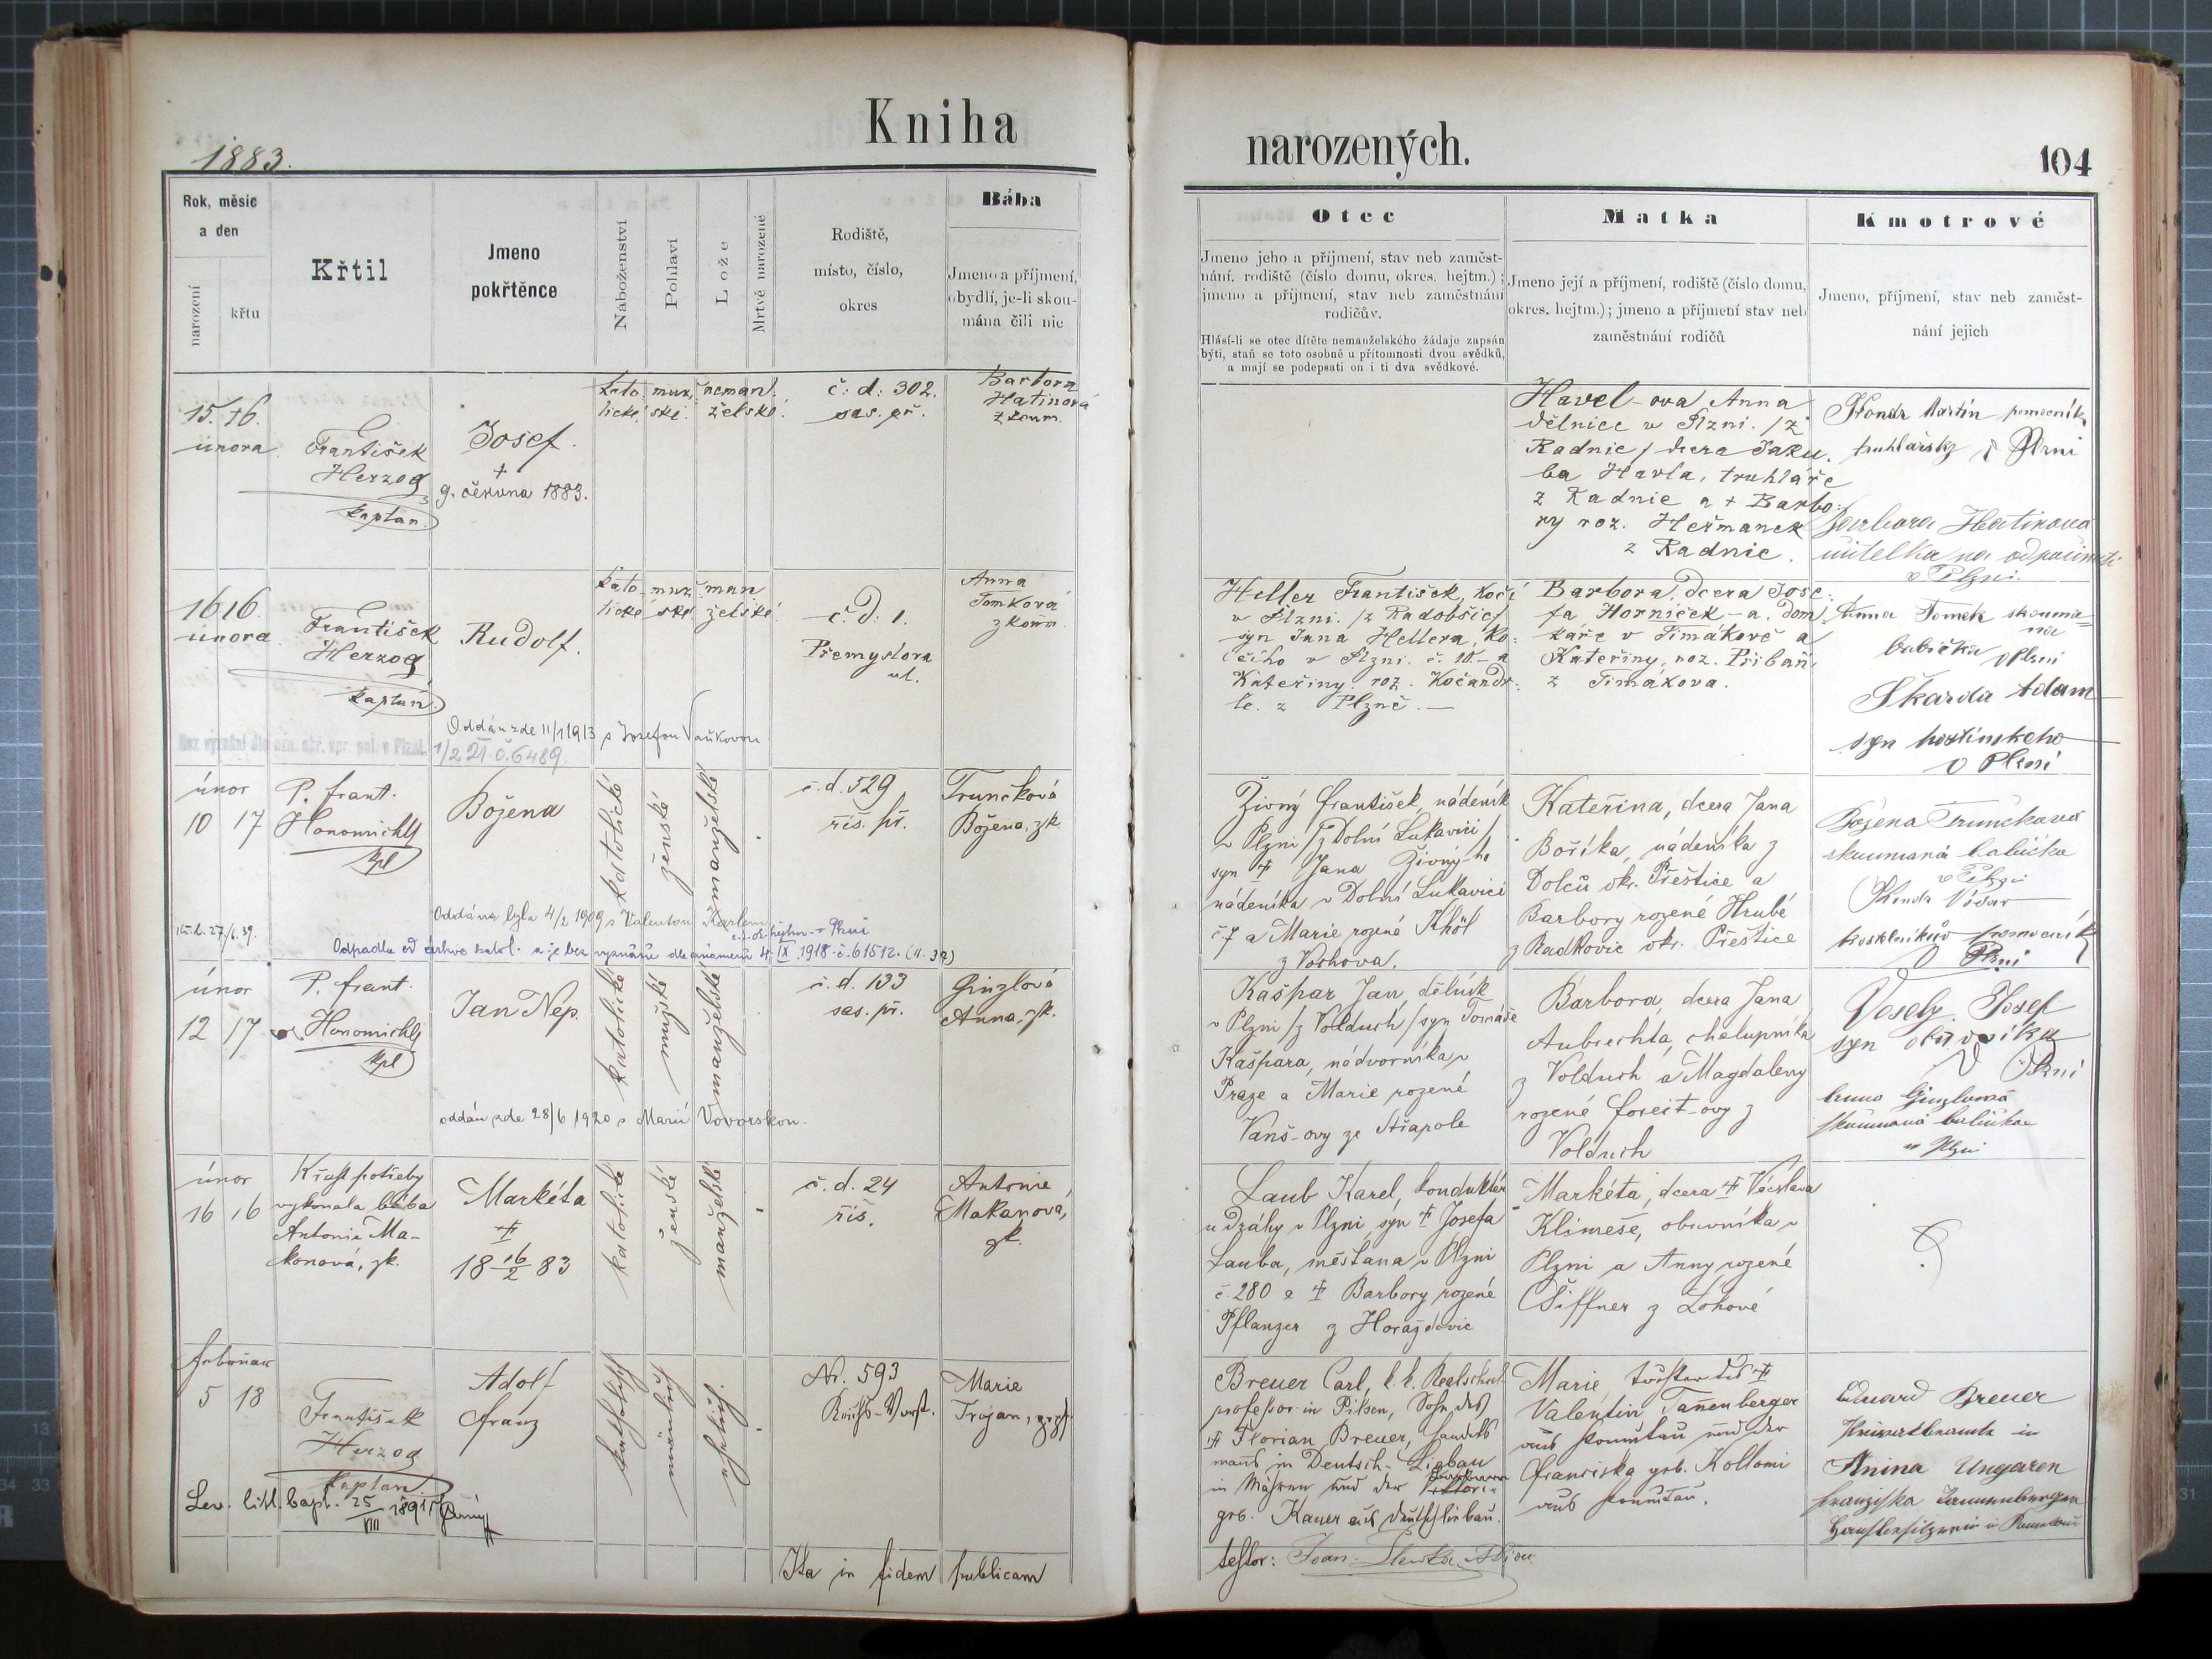 Kniha
narozených.
1883.
104
Rok, měsíc
a den
narození
křtu
Křtil
Jmeno
pokřtěnce
Náboženství
Pohlaví
Lože
Mrtvě narozené
Rodiště,
místo, číslo,
okres
Bába
Jmeno a příjmení,
obydlí, je-li skou-
mána čili nic
Otec
Jmeno jeho a příjmení, stav neb zaměst-
nání, rodiště (číslo domu, okres. hejtm.);
jmeno a příjmení, stav neb zaměstnání
rodičův.
Hlásí-li se otec dítěte nemanželského žádaje zapsán
býti, staň se toto osobně u přítomnosti dvou svědků,
a mají se podepsati on i ti dva svědkové.
Matka
Jmeno její a příjmení, rodiště (číslo domu,
okres. hejtm.); jmeno a příjmení stav neb
zaměstnání rodičů
Kmotrové
Jmeno, příjmení, stav neb zaměst-
nání jejich
15. 16.
února
František
Herzog
kaplan.
Josef.
+
9. června 1883.
kato muž neman
lické ské želské.
č: d: 302.
sas. př.
Barbora
Hatinová
zkoum.
Havel-ova Anna
dělnice v Plzni. /z
Radnic/ dcera Jaku
ba Havla, truhláře
z Radnic a + Barbo-
ry roz. Heřmanek
z Radnic.
Martin pomocník
truhlářský v Plzni
Barbora Hatinová
učitelka na odpočinutí
v Plzni.
16 16.
února
František
Herzog
kaplan.
Rudolf.
kato muž man
lické ské želské
č. d: 1.
Přemyslova
ul.
Anna
Tomková
zkoum.
Oddán zde 11/1 1913 s Josefou Vaňkovou
č. 6489.
Heller František, kočí
v Plzni. /z Radobšic/
syn Jana Hellera, ko-
čího v Plzni. č. 10. a
Kateřiny roz. Kočandr-
le. z Plzně.
Barbora, dcera Jose-
fa Horníček-a, dom
káře v Timákově a
Kateřiny, roz. Přibáň,
z Timákova.
Anna Tomek skouma-
ná
babička v Plzni
Skarda Adam
syn hostinského
v Plzni
únor
10 17
P. Frant.
Honomichl
kpl
Božena
katolické
ženské
manželské
č. d. 529
říš. př.
Trunčková
Božena, zk.
Oddána byla 4/2 1909 s Valentou Karlem
Odpadla od církve katol. a je bez vyznání dle oznámení 4. IX. 1918 č. 61512.
Živný František, nádeník
v Plzni /z Dolní Lukavici/
syn + Jana Živný-ho
nádeníka v Dolní Lukavici
č. 7 a Marie rozené Khöl
z Vochova.
Kateřina, dcera Jana
Boříka, nádeníka z
Dolců okr. Přeštice a
Barbory rozené Hrubé
z Radkovic okr. Přeštice
Božena Trunčková
skoumaná babička
v Plzni
pomocník
v Plzni
únor
12 17
P. Frant.
Honomichl
kpl
Jan Nep.
katolické
mužské
manželské
č. d. 133
sas. př.
Ginzlová
Anna, zk.
oddán zde 28/6 1920 s Marií Vovorskou.
Kašpar Jan, dělník
v Plzni /z Volduch/ syn Tomáše
Kašpara, nádvorníka v
Praze a Marie rozené
Vanš-ovy ze Střapole
Barbora, dcera Jana
Aubrechta, chalupníka
z Volduch a Magdaleny
rozené Foreit-ovy z
Volduch
Veselý Josef
syn obuvníka
v Plzni
Anna Ginzlová
skoumaná babička
v Plzni
únor
16 16
Křest potřeby
vykonala bába
Antonie Ma-
kanová, zk.
Markéta
+
18 16/2 83
katolické
ženské
manželské
č. d. 24
říš.
Antonie
Makanová,
zk.
Laub Karel, konduktér
u dráhy v Plzni, syn + Josefa
Lauba, měšťana v Plzni
č. 280 a + Barbory rozené
Pflanzer z Horažďovic
Markéta, dcera + Václava
Klimeše, obuvníka v
Plzni a Anny rozené
Šiffner z Lohové
Februar
5 18
František
Herzog
kaplan.
Adolf
Franz
katholisch
männlich
ehelich.
Nr. 593
Reichs-Vorst.
Marie
Trojan, gepr.
Lev. litt. bapt. 25/VIII 1891
Breuer Carl, k. k. Realschul
professor in Pilsen, Sohn des
+ Florian Breuer, Handels
manns in Deutsch-Liebau
in Mähren und der
geb. Kauer aus Deutschliebau.
Marie, Tochter des +
Valentin Tannenberger
aus Komotau und der
Franciska geb. Kollomi
aus Komotau.
Eduard Breuer
in
Anina Ungaren
Franziska Tannenberger
Hausbesitzerin in Komotau
Ita in fidem publicam
testor: Joan.